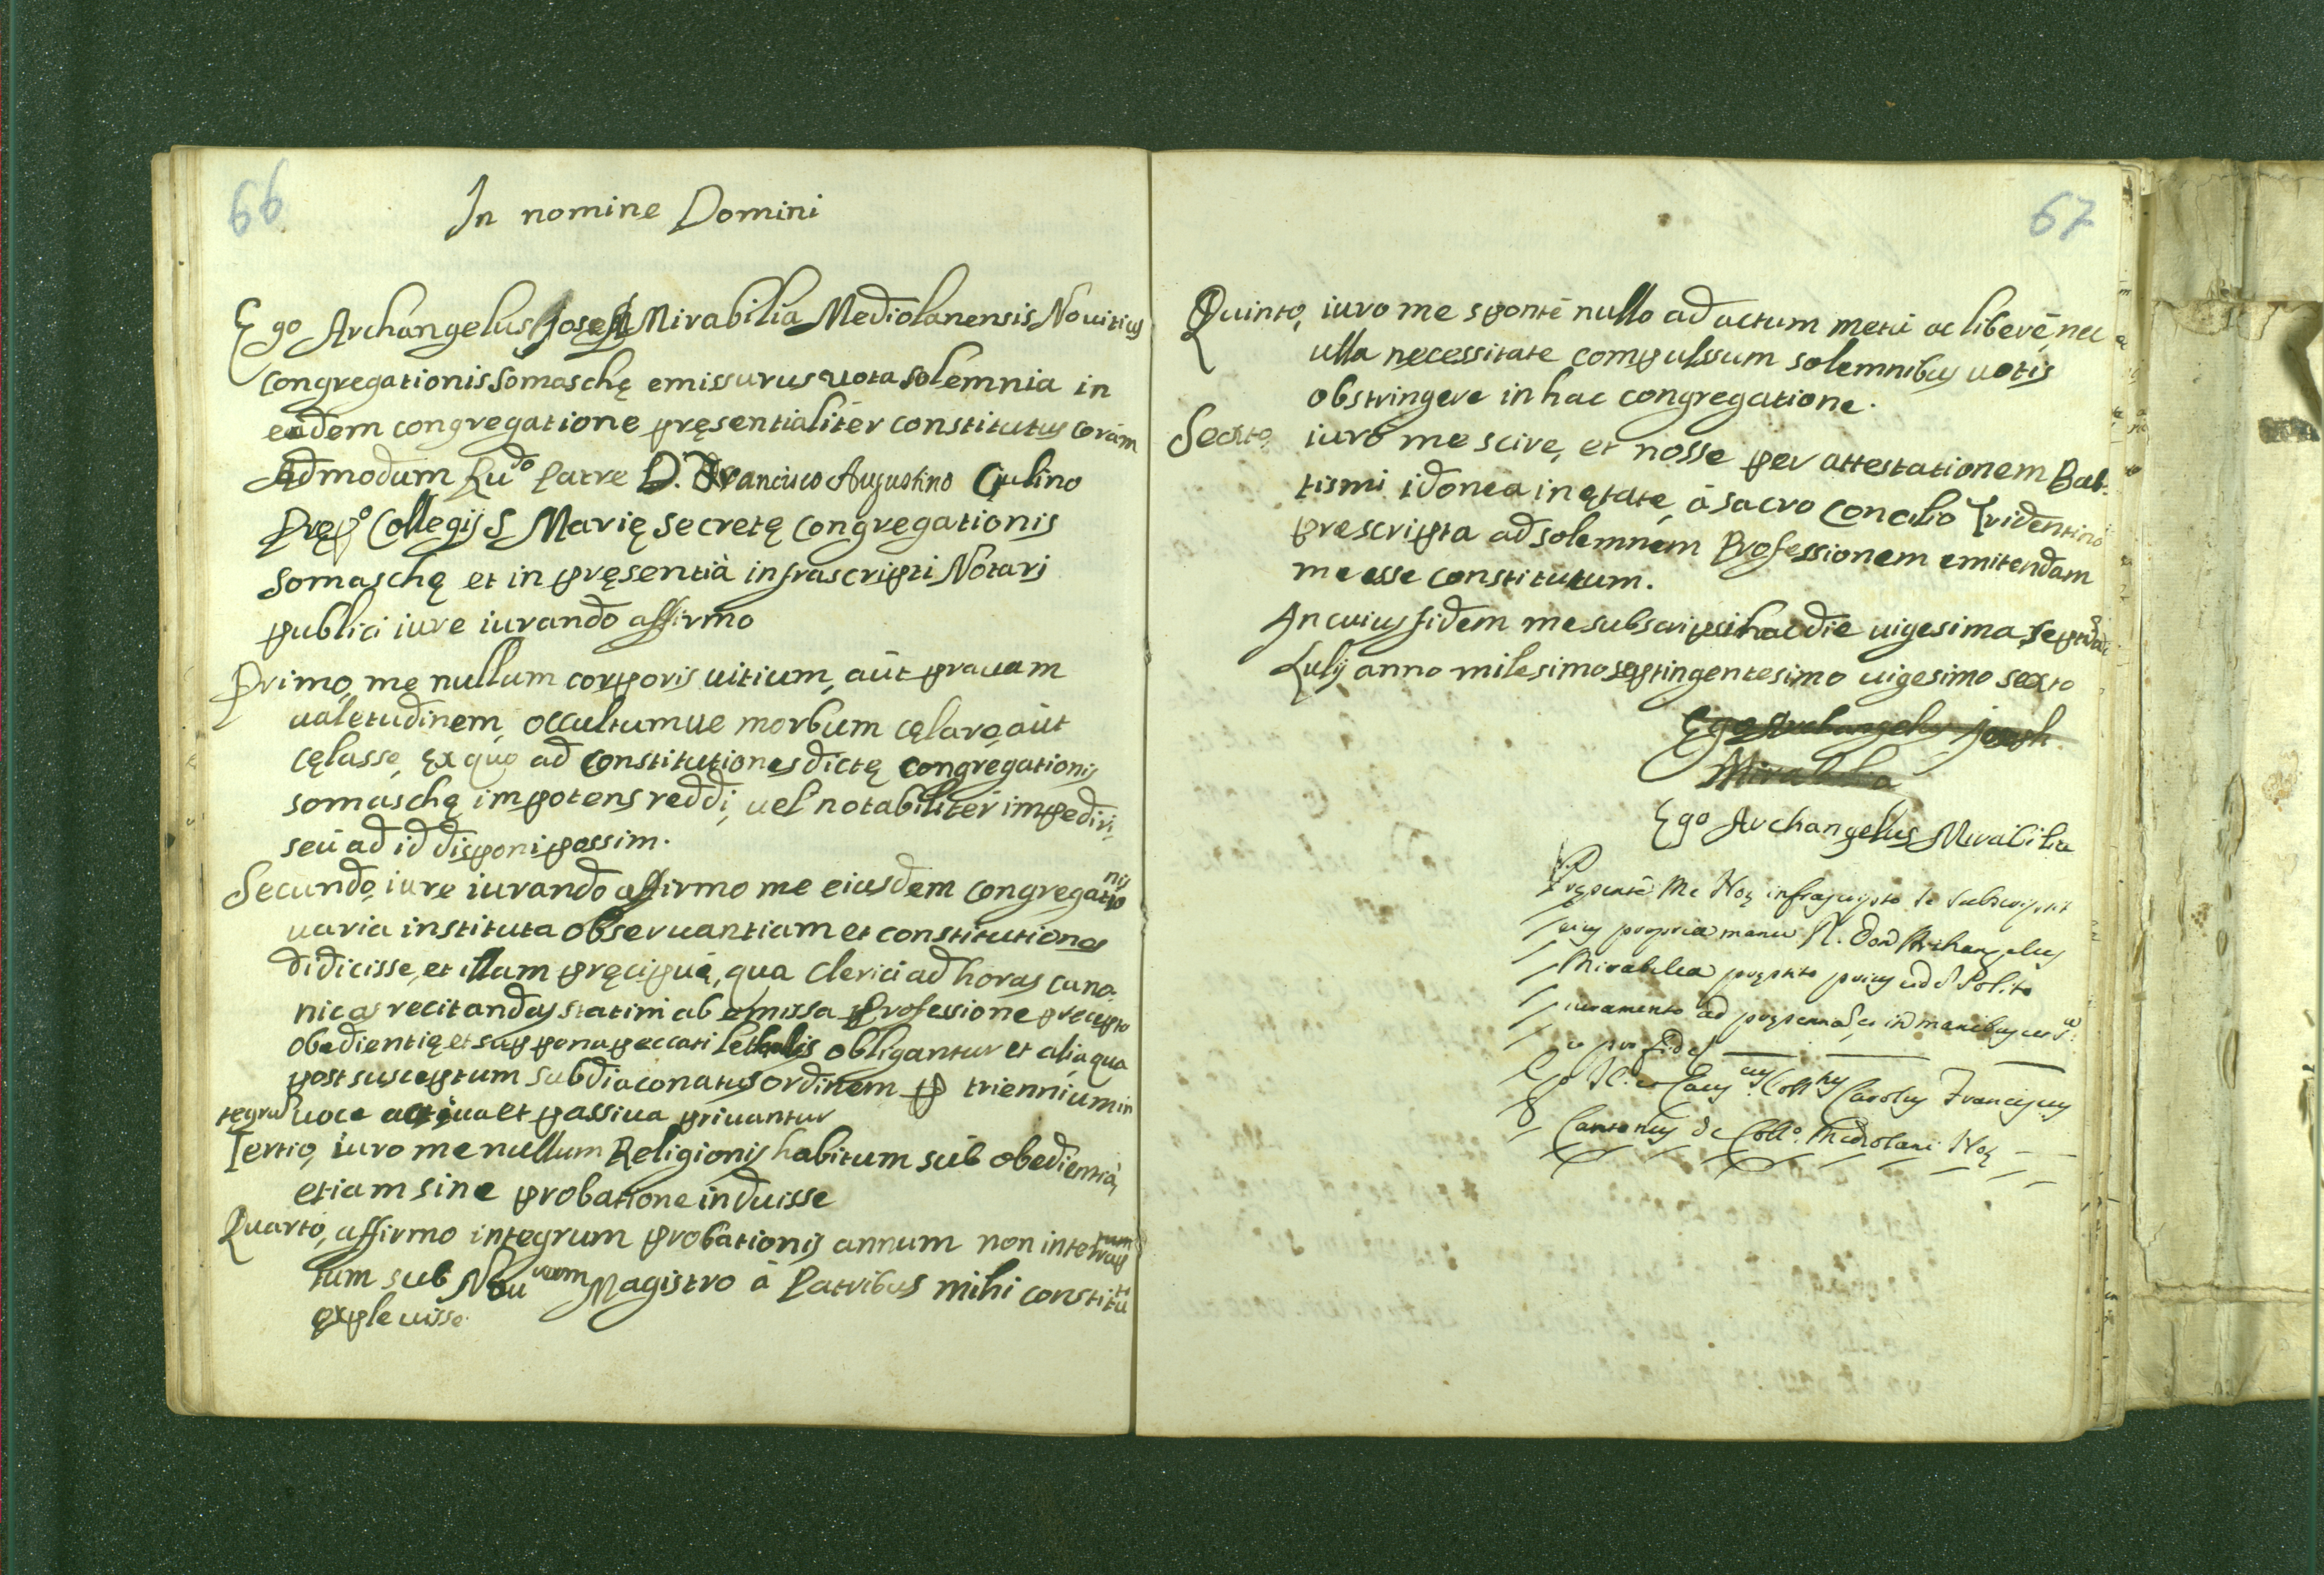 66
In nomine Domini
Ego Archangelus Joseph Mirabilia Mediolanensis Nouitius
Congregationis Somaschę emissurus uota solemnia in
eadem congregatione pręsentialiter constitutus coram
Admodum Rudo Patre D. Francisco Augustino Giulino
Prępo Collegij S Marię Secretę Congregationis
Somaschę et in pręsentià infrascripti Notarj
publici iure iurando affirmo
Primo, me nullum corporis uitium, aùt prauam
ualetudinem, occultumue morbum cęlare, aùt
cęlasse, ex quo ad Constitutiones dictę congregationis
somaschę impotens reddi, uel notabilitèr impediri,
seù ad id disponi possim.
Secundo, iure iurando affirmo me eiusdem Congregationis
uaria instituta obseruantiam et constitutiones
didicisse, et illam pręcipuè, qua Clerici ad horas cano-
nicas recitandas statim ab emissa Professione precepto
obedientię et sup pena peccati lethalis obligantur et alia qua
post susceptum subdiaconatus ordinem p triennium in
tegrū uoce actiua et passiua priuantur
Tertio, iuro me nullum Religionis habitum sùb obedientia,
etiam sine probatione induisse
Quarto, affirmo integrum probationis annum non interrup
tum sub Nouuorm Magistro à Patribus mihi constituto
expleuisse
67
Quinto, iuro me spontè nullo ad actum metù ac liberè, nec
ulla necessitate compulssum solemnibus uotis
obstringere in hac congregatione.
Sexto, iurò me scire, et nosse per attestationem Bab-
tismi idonea in ętate, à sacro Concilio Tridentino
prescripta ad solemnem Professionem emitendam
me esse constitutum.
In cuius fidem me subscripsi hac die uigesima septima
Lulij anno milesimo septingentesimo uigesimo sexto
Ego Archangelus Joseph
Mirabilia
Ego Archangelus Mirabilia
Pręsentè Me Notę infrascripto se subscripsit
eius propria manu R. Don Archangelus
Mirabilia pręstito prius
iuramento ad in manibus
pro fide
Carolus Franciscus
Cantonus de Collo. Mediolani Notę